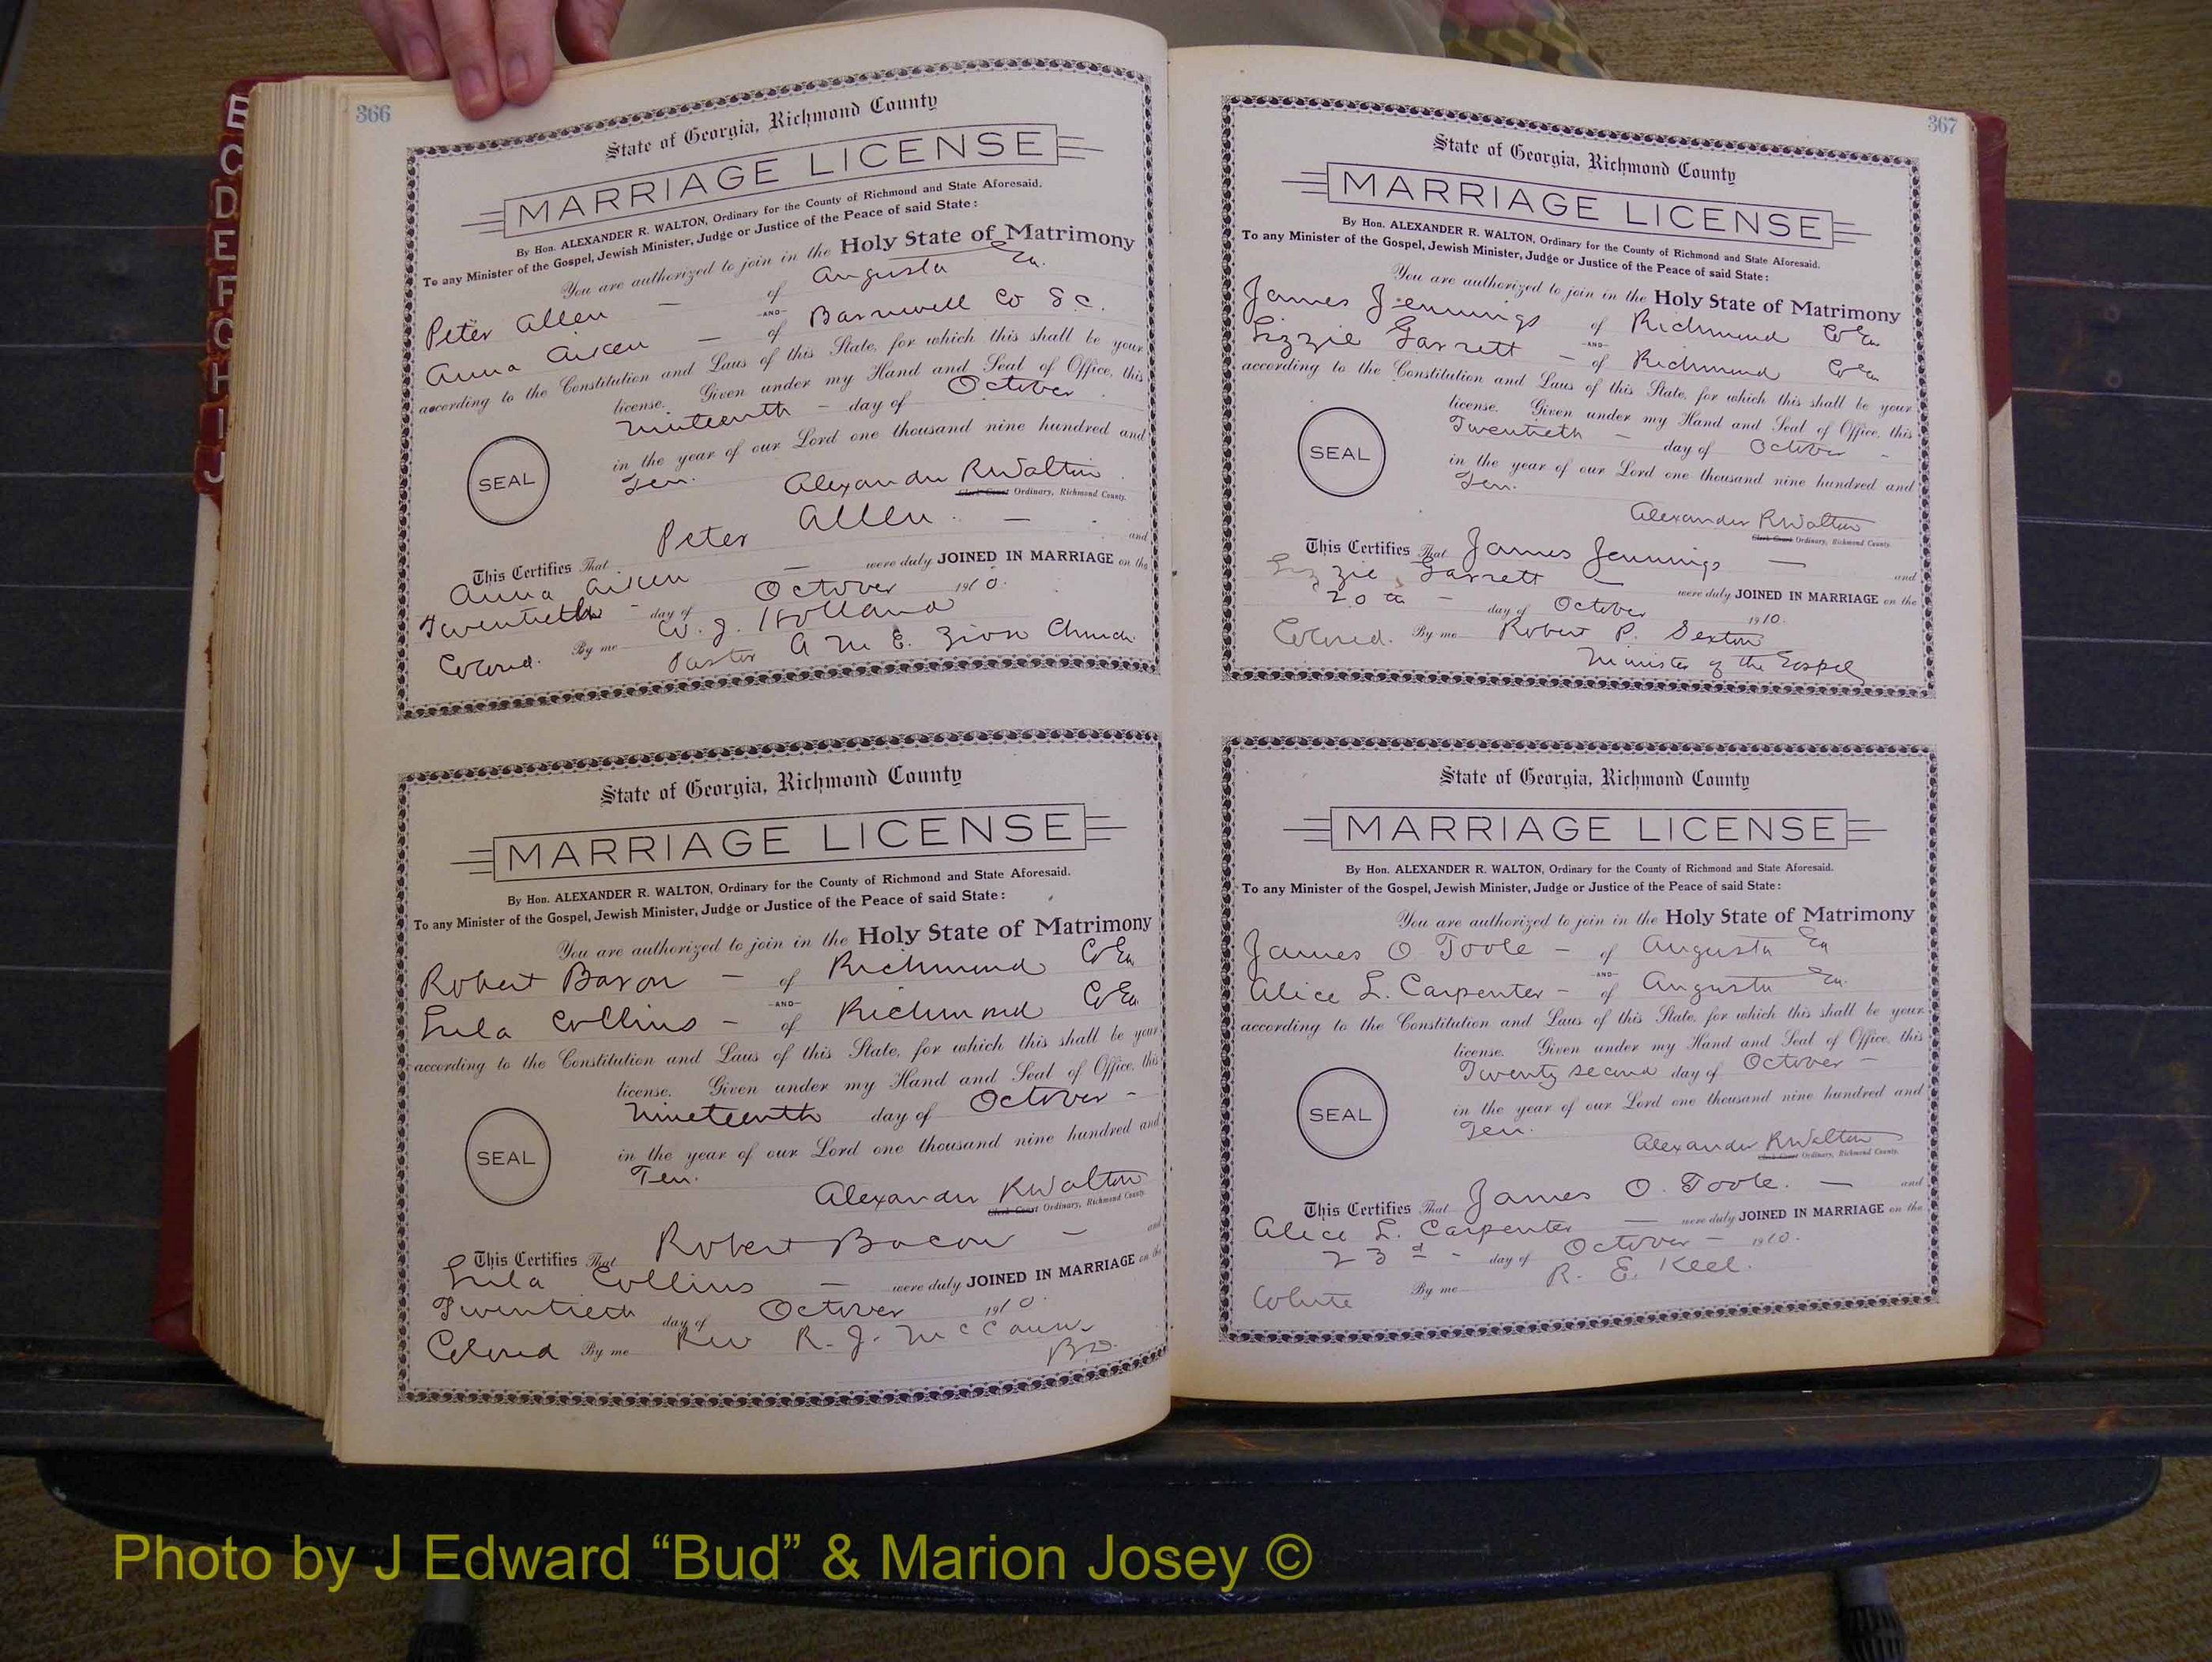 366
State of Georgia, Richmond County
MARRIAGE LICENSE
By Hon. ALEXANDER R. WALTON, Ordinary for the County of Richmond and State Aforesaid.
To any Minister of the Gospel, Jewish Minister, Judge or Justice of the Peace of said State:
You are authorized to join in the Holy State of Matrimony
Peter Allen — of Augusta Ga.
—AND—
Anna Aiken — of Barnwell Co S.C.
according to the Constitution and Laws of this State, for which this shall be your
license. Given under my Hand and Seal of Office, this
Nineteenth — day of October
in the year of our Lord one thousand nine hundred and
SEAL
Ten.
Alexander R Walton
Clerk Court Ordinary, Richmond County.
This Certifies That Peter Allen — and
Anna Aiken — were duly JOINED IN MARRIAGE on the
Twentieth — day of October 1910.
Colored. By me W. J. Holland
Pastor A M E. Zion Church
State of Georgia, Richmond County
MARRIAGE LICENSE
By Hon. ALEXANDER R. WALTON, Ordinary for the County of Richmond and State Aforesaid.
To any Minister of the Gospel, Jewish Minister, Judge or Justice of the Peace of said State:
You are authorized to join in the Holy State of Matrimony
Robert Bacon — of Richmond Co Ga
—AND—
Lula Collins — of Richmond Co Ga
according to the Constitution and Laws of this State, for which this shall be your
license. Given under my Hand and Seal of Office, this
Nineteenth day of October —
in the year of our Lord one thousand nine hundred and
SEAL
Ten.
Alexander R Walton
Clerk Court Ordinary, Richmond County.
This Certifies That Robert Bacon — and
Lula Collins — were duly JOINED IN MARRIAGE on the
Twentieth day of October 1910.
Colored By me Rev R. J. McCann
367
State of Georgia, Richmond County
MARRIAGE LICENSE
By Hon. ALEXANDER R. WALTON, Ordinary for the County of Richmond and State Aforesaid.
To any Minister of the Gospel, Jewish Minister, Judge or Justice of the Peace of said State:
You are authorized to join in the Holy State of Matrimony
James Jennings of Richmond Co Ga
—AND—
Lizzie Garrett — of Richmond Co Ga
according to the Constitution and Laws of this State, for which this shall be your
license. Given under my Hand and Seal of Office, this
Twentieth — day of October —
in the year of our Lord one thousand nine hundred and
SEAL
Ten.
Alexander R Walton
Clerk Court Ordinary, Richmond County.
This Certifies That James Jennings — and
Lizzie Garrett — were duly JOINED IN MARRIAGE on the
20th — day of October 1910.
Colored. By me Robert P. Sexton
Minister of the Gospel
State of Georgia, Richmond County
MARRIAGE LICENSE
By Hon. ALEXANDER R. WALTON, Ordinary for the County of Richmond and State Aforesaid.
To any Minister of the Gospel, Jewish Minister, Judge or Justice of the Peace of said State:
You are authorized to join in the Holy State of Matrimony
James O Toole — of Augusta Ga
—AND—
Alice L. Carpenter — of Augusta Ga.
according to the Constitution and Laws of this State, for which this shall be your
license. Given under my Hand and Seal of Office, this
Twenty second day of October —
in the year of our Lord one thousand nine hundred and
SEAL
Ten.
Alexander R Walton
Clerk Court Ordinary, Richmond County.
This Certifies That James O. Toole. — and
Alice L. Carpenter — were duly JOINED IN MARRIAGE on the
23d — day of October — 1910.
White By me R. E. Keel.
C
D
E
F
G
H
I
J
Photo by J Edward “Bud” & Marion Josey ©